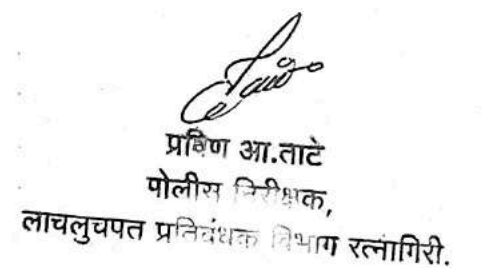 प्रविण आ.ताटे
पोलीस निरीक्षक,
लाचलुचपत प्रतिबंधक विभाग रत्नागिरी.